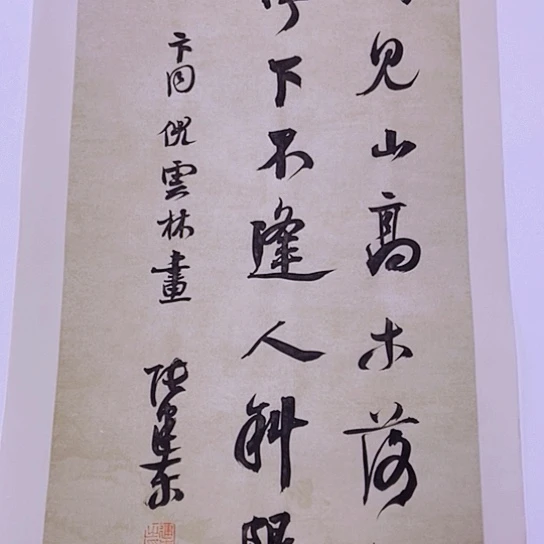 見山高木落
下不逢人斜
卞同倪雲林畫